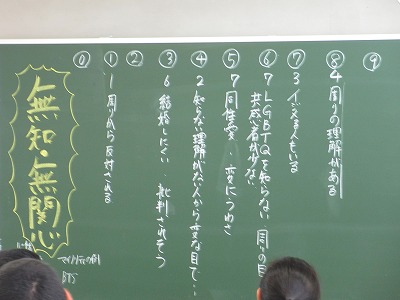 ⑨
⑧ 4 周りの理解がある
⑦ 3 イジる人もいる
⑥ 7 LGBTQを知らない 周りの目
共感者が少ない
⑤ 7 同性愛・変にうわさ
④ 2 知らない理解がない人から変な目で…
③ 6 結婚しにくい 批判されそう
②
① 1 周りから反対される
⓪
無知・無関心
マイノリティの例
BTS